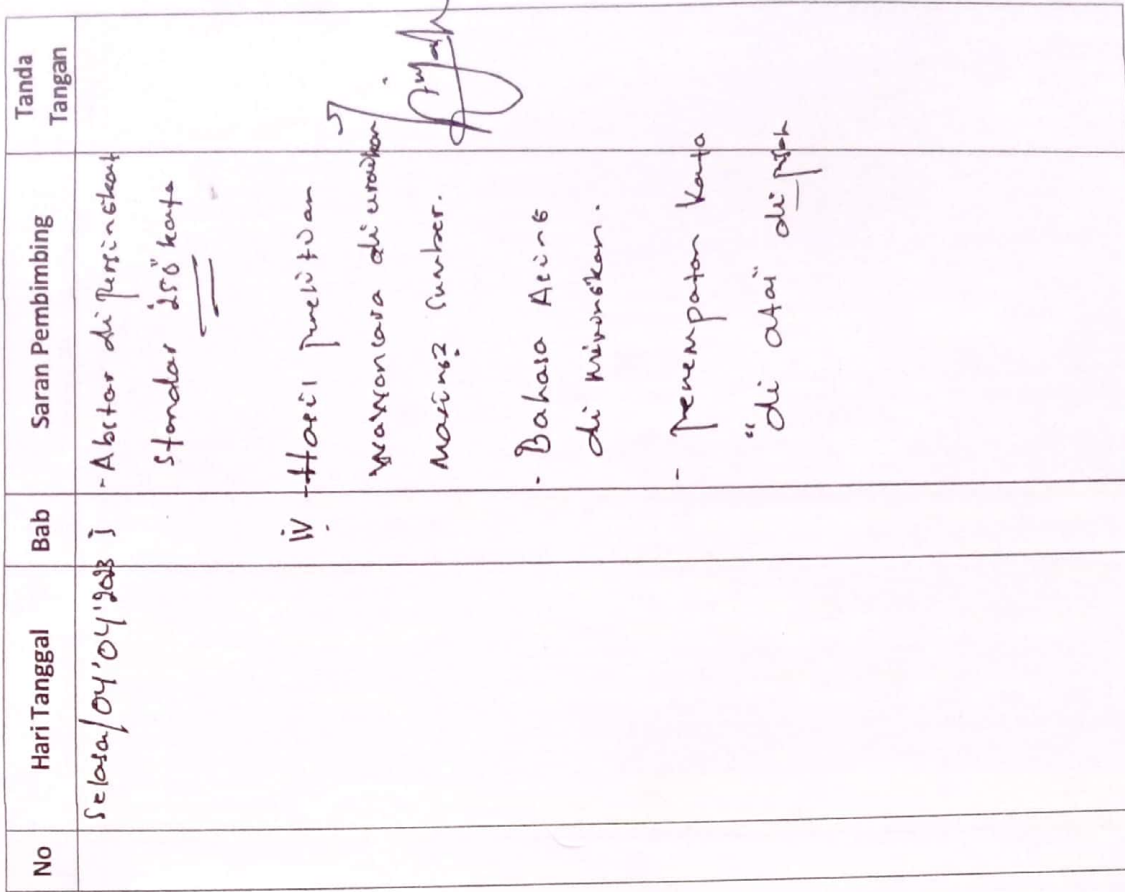 No
Hari Tanggal
Bab
Saran Pembimbing
Tanda Tangan
Selasa/04'04'2023
I
- Abstrak di persingkat
Standar 250 kata
IV
- Hasil penelitian
wawancara di uraikan
Masing2 Sumber.
- Bahasa Asing
di miringkan.
- penempatan kata
"di atas" di pisah